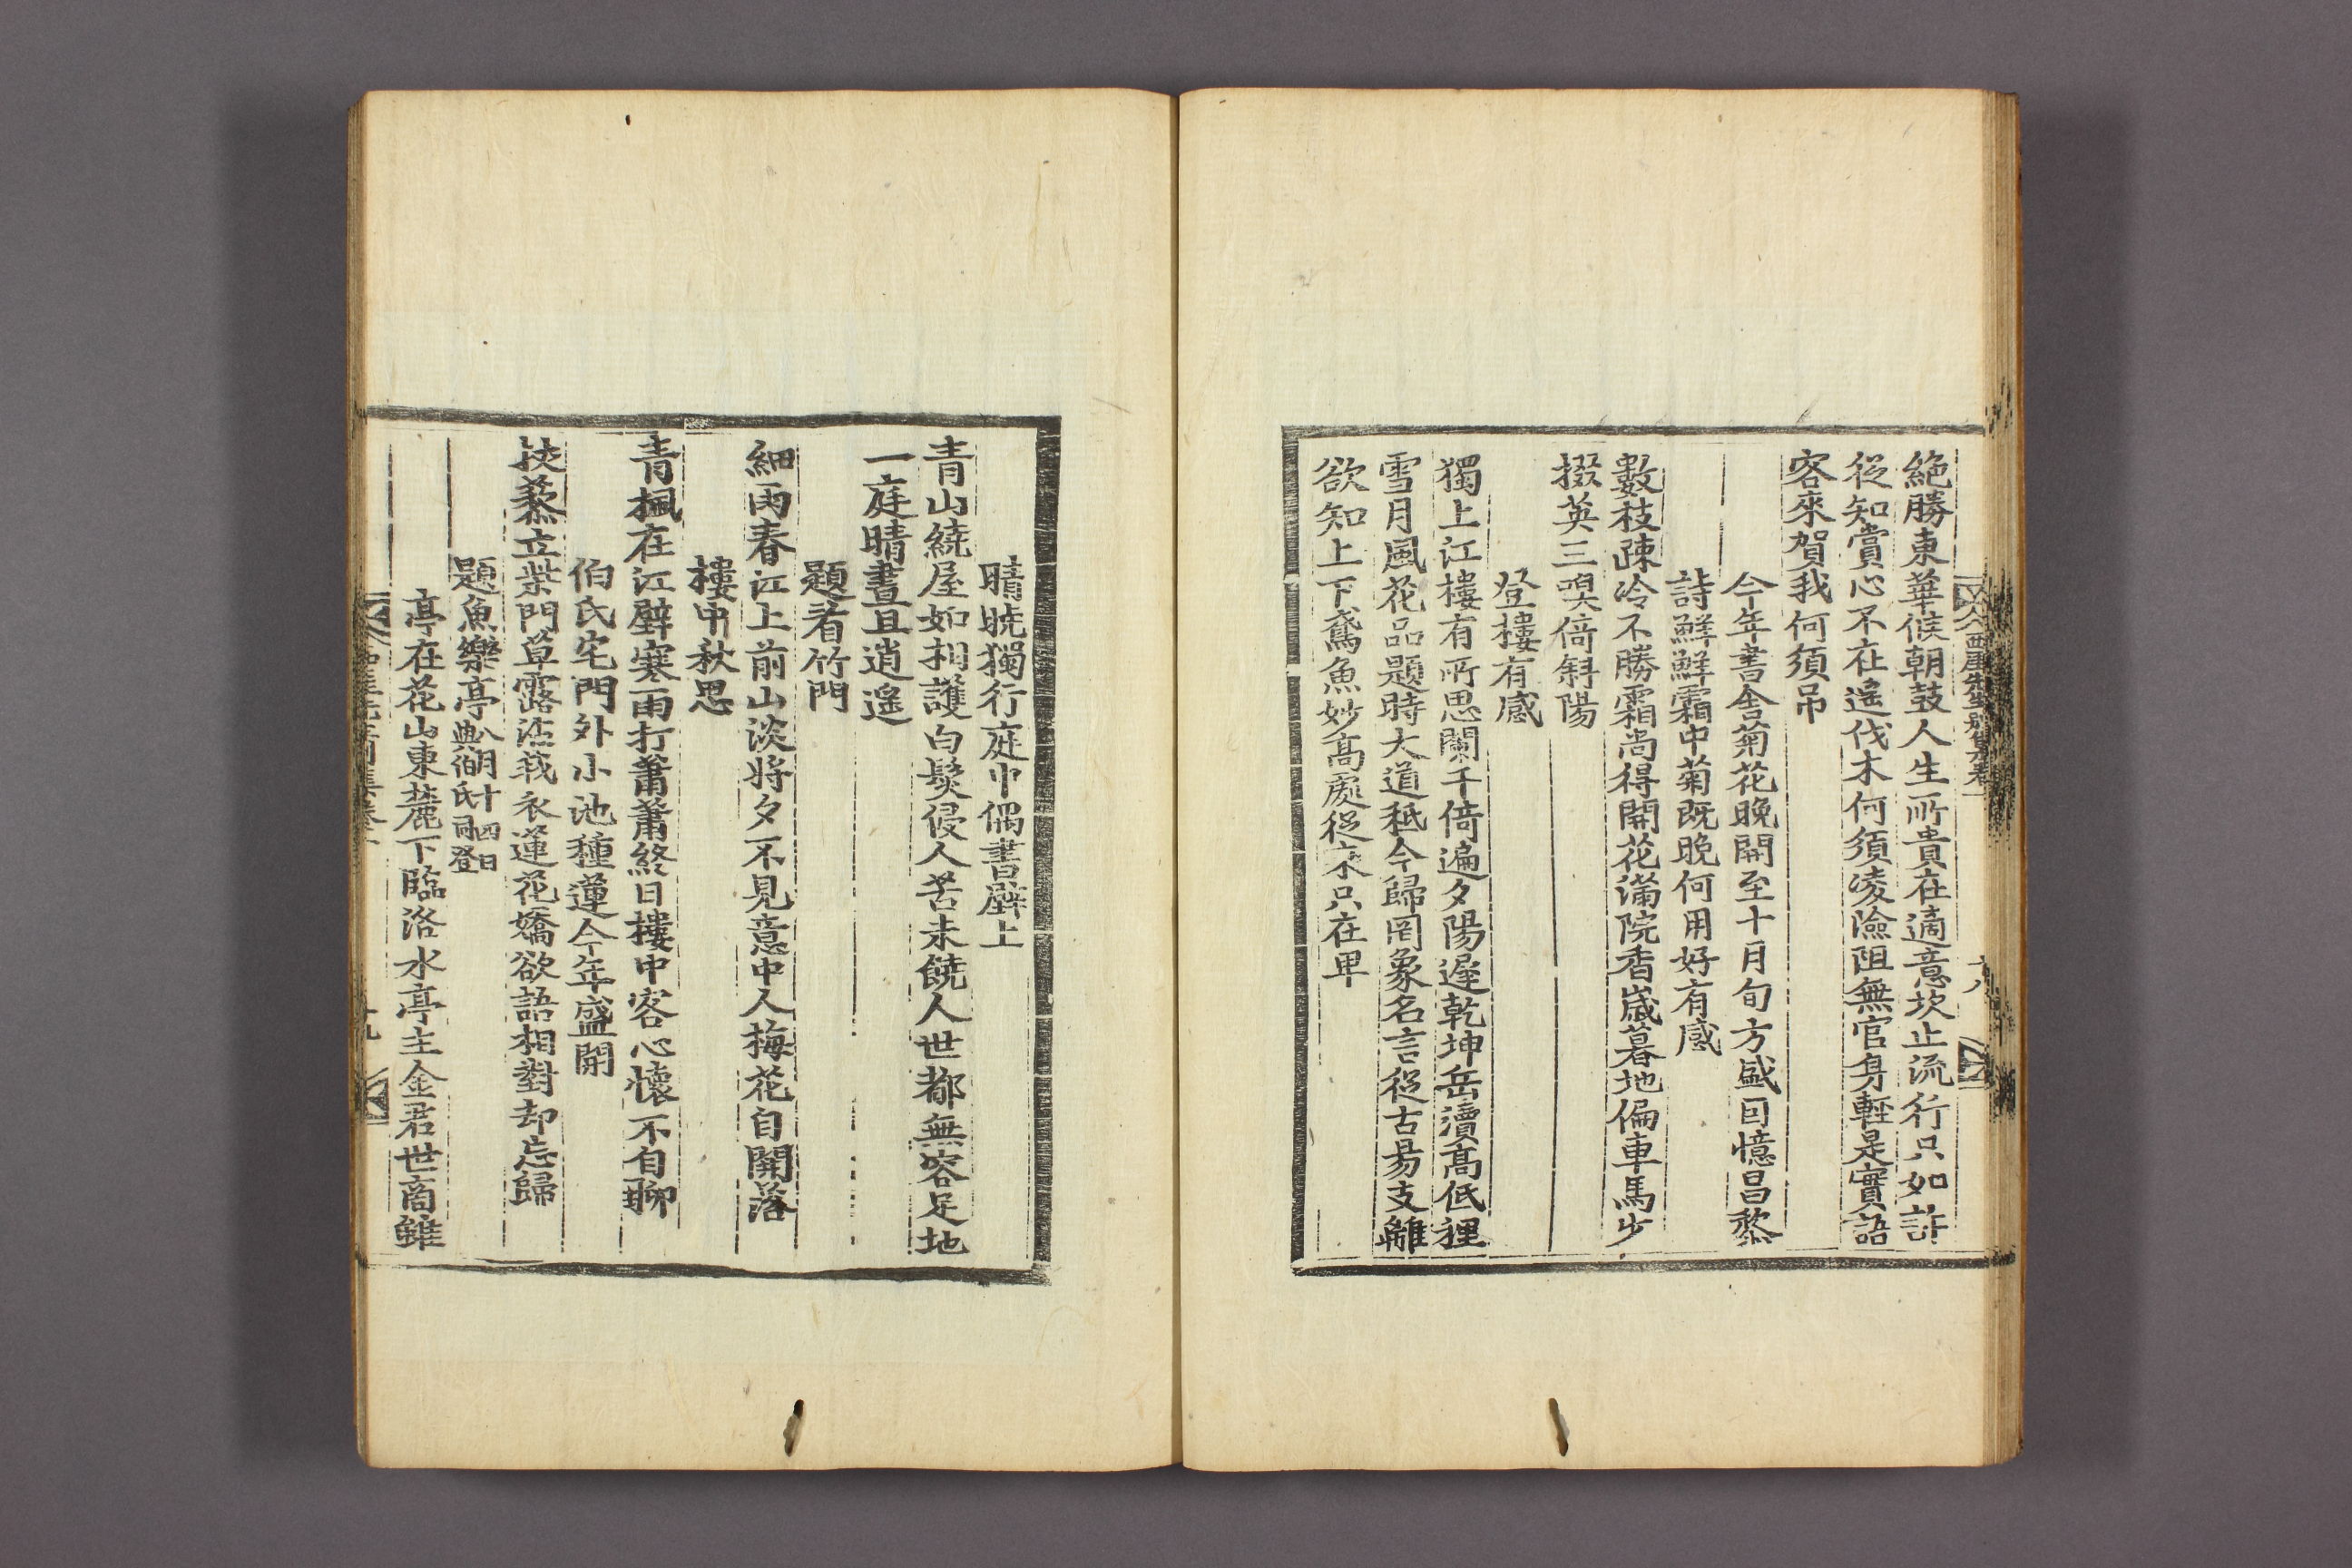 西厓先生別集卷一
十八
絶勝東華候朝鼓人生所貴在適意坎止流行只如許
從知賞心不在遙伐木何須凌險阻無官身輕是實語
客來賀我何須吊
今年書舎菊花晩開至十月旬方盛回憶昌黎
詩鮮鮮霜中菊既晩何用好有感
數枝疎冷不勝霜尚得開花滿院香歳暮地偏車馬少
掇英三嗅倚斜陽
登樓有感
獨上江樓有所思闌干倚遍夕陽遲乾坤岳瀆高低裡
雪月風花品題時大道秪今歸罔象名言從古易支離
欲知上下鳶魚妙高處從來只在卑
晴晩獨行庭中偶書壁上
青山繞屋如相護白髮侵人苦未饒人世都無容足地
一庭晴晝且逍遙
題看竹門
細雨春江上前山淡將夕不見意中人梅花自開落
樓中秋思
青楓在江壁寒雨打蕭蕭終日樓中客心懷不自聊
伯氏宅門外小池種蓮今年盛開
扶藜立柴門草露沾我衣蓮花嬌欲語相對却忘歸
題魚樂亭八月十四日與伯氏同登
亭在花山東麓下臨洛水亭主金君世商雖
十九